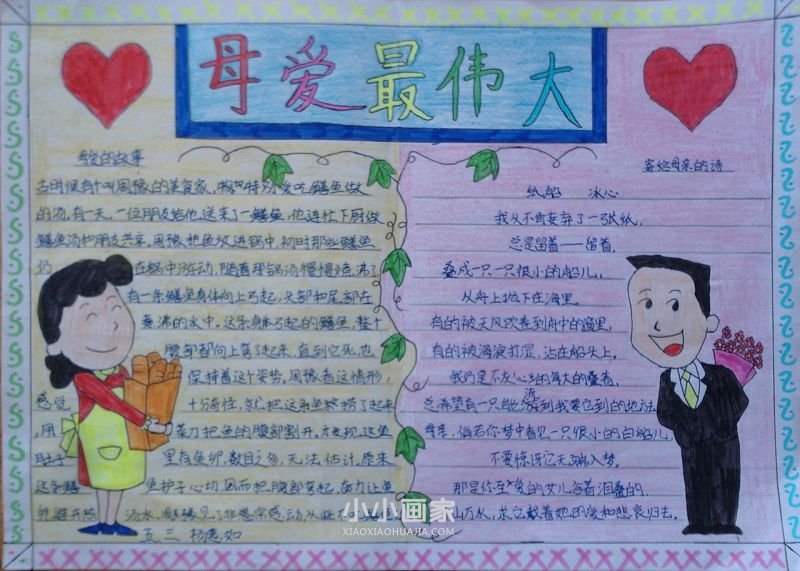 母爱最伟大
母爱的故事
古时候有个叫周豫的美食家,他特别爱吃鳝鱼做
的汤,有一天,一位朋友给他送来了一鳝鱼,他连忙下厨做
鳝鱼汤和朋友共享,周豫把鱼放进锅中,初时那些鳝鱼
仍在锅中游动,随着那锅汤慢慢烧沸了
有一条鳝鱼身体向上弓起,头部和尾部在
煮沸的水中。这条身体弓起的鳝鱼,整个
腹部都向上弯了起来,直到它死,也
保持着这个姿势,周豫看这情形,
感觉十分奇怪,就把这条鱼捞了起来
用菜刀把鱼的腹部割开,才发现,这鱼
肚子里有鱼卵,数目之多,无法估计,原来
这条鳝鱼护子心切,因而把腹部弯起,奋力让鱼
卵避开热汤水,周豫见了非常感动,从此
五、三 杨惠如
寄给母亲的诗
纸船 冰心
我从不肯妄弃了一张纸,
总是留着——留着,
叠成一只一只很小的船儿,
从舟上抛下在海里。
有的被天风吹卷到舟中的窗里,
有的被海浪打湿,沾在船头上,
我仍是不灰心的每天的叠着,
总希望有一只能流到我要它到的地方
母亲,倘若你梦中看见一只很小的白船儿,
不要惊讶它无端入梦。
那是你至爱的女儿含着泪叠的,
万水,求它载着她的爱和悲哀归去。
小小画家
XIAOXIAOHUAJIA.COM